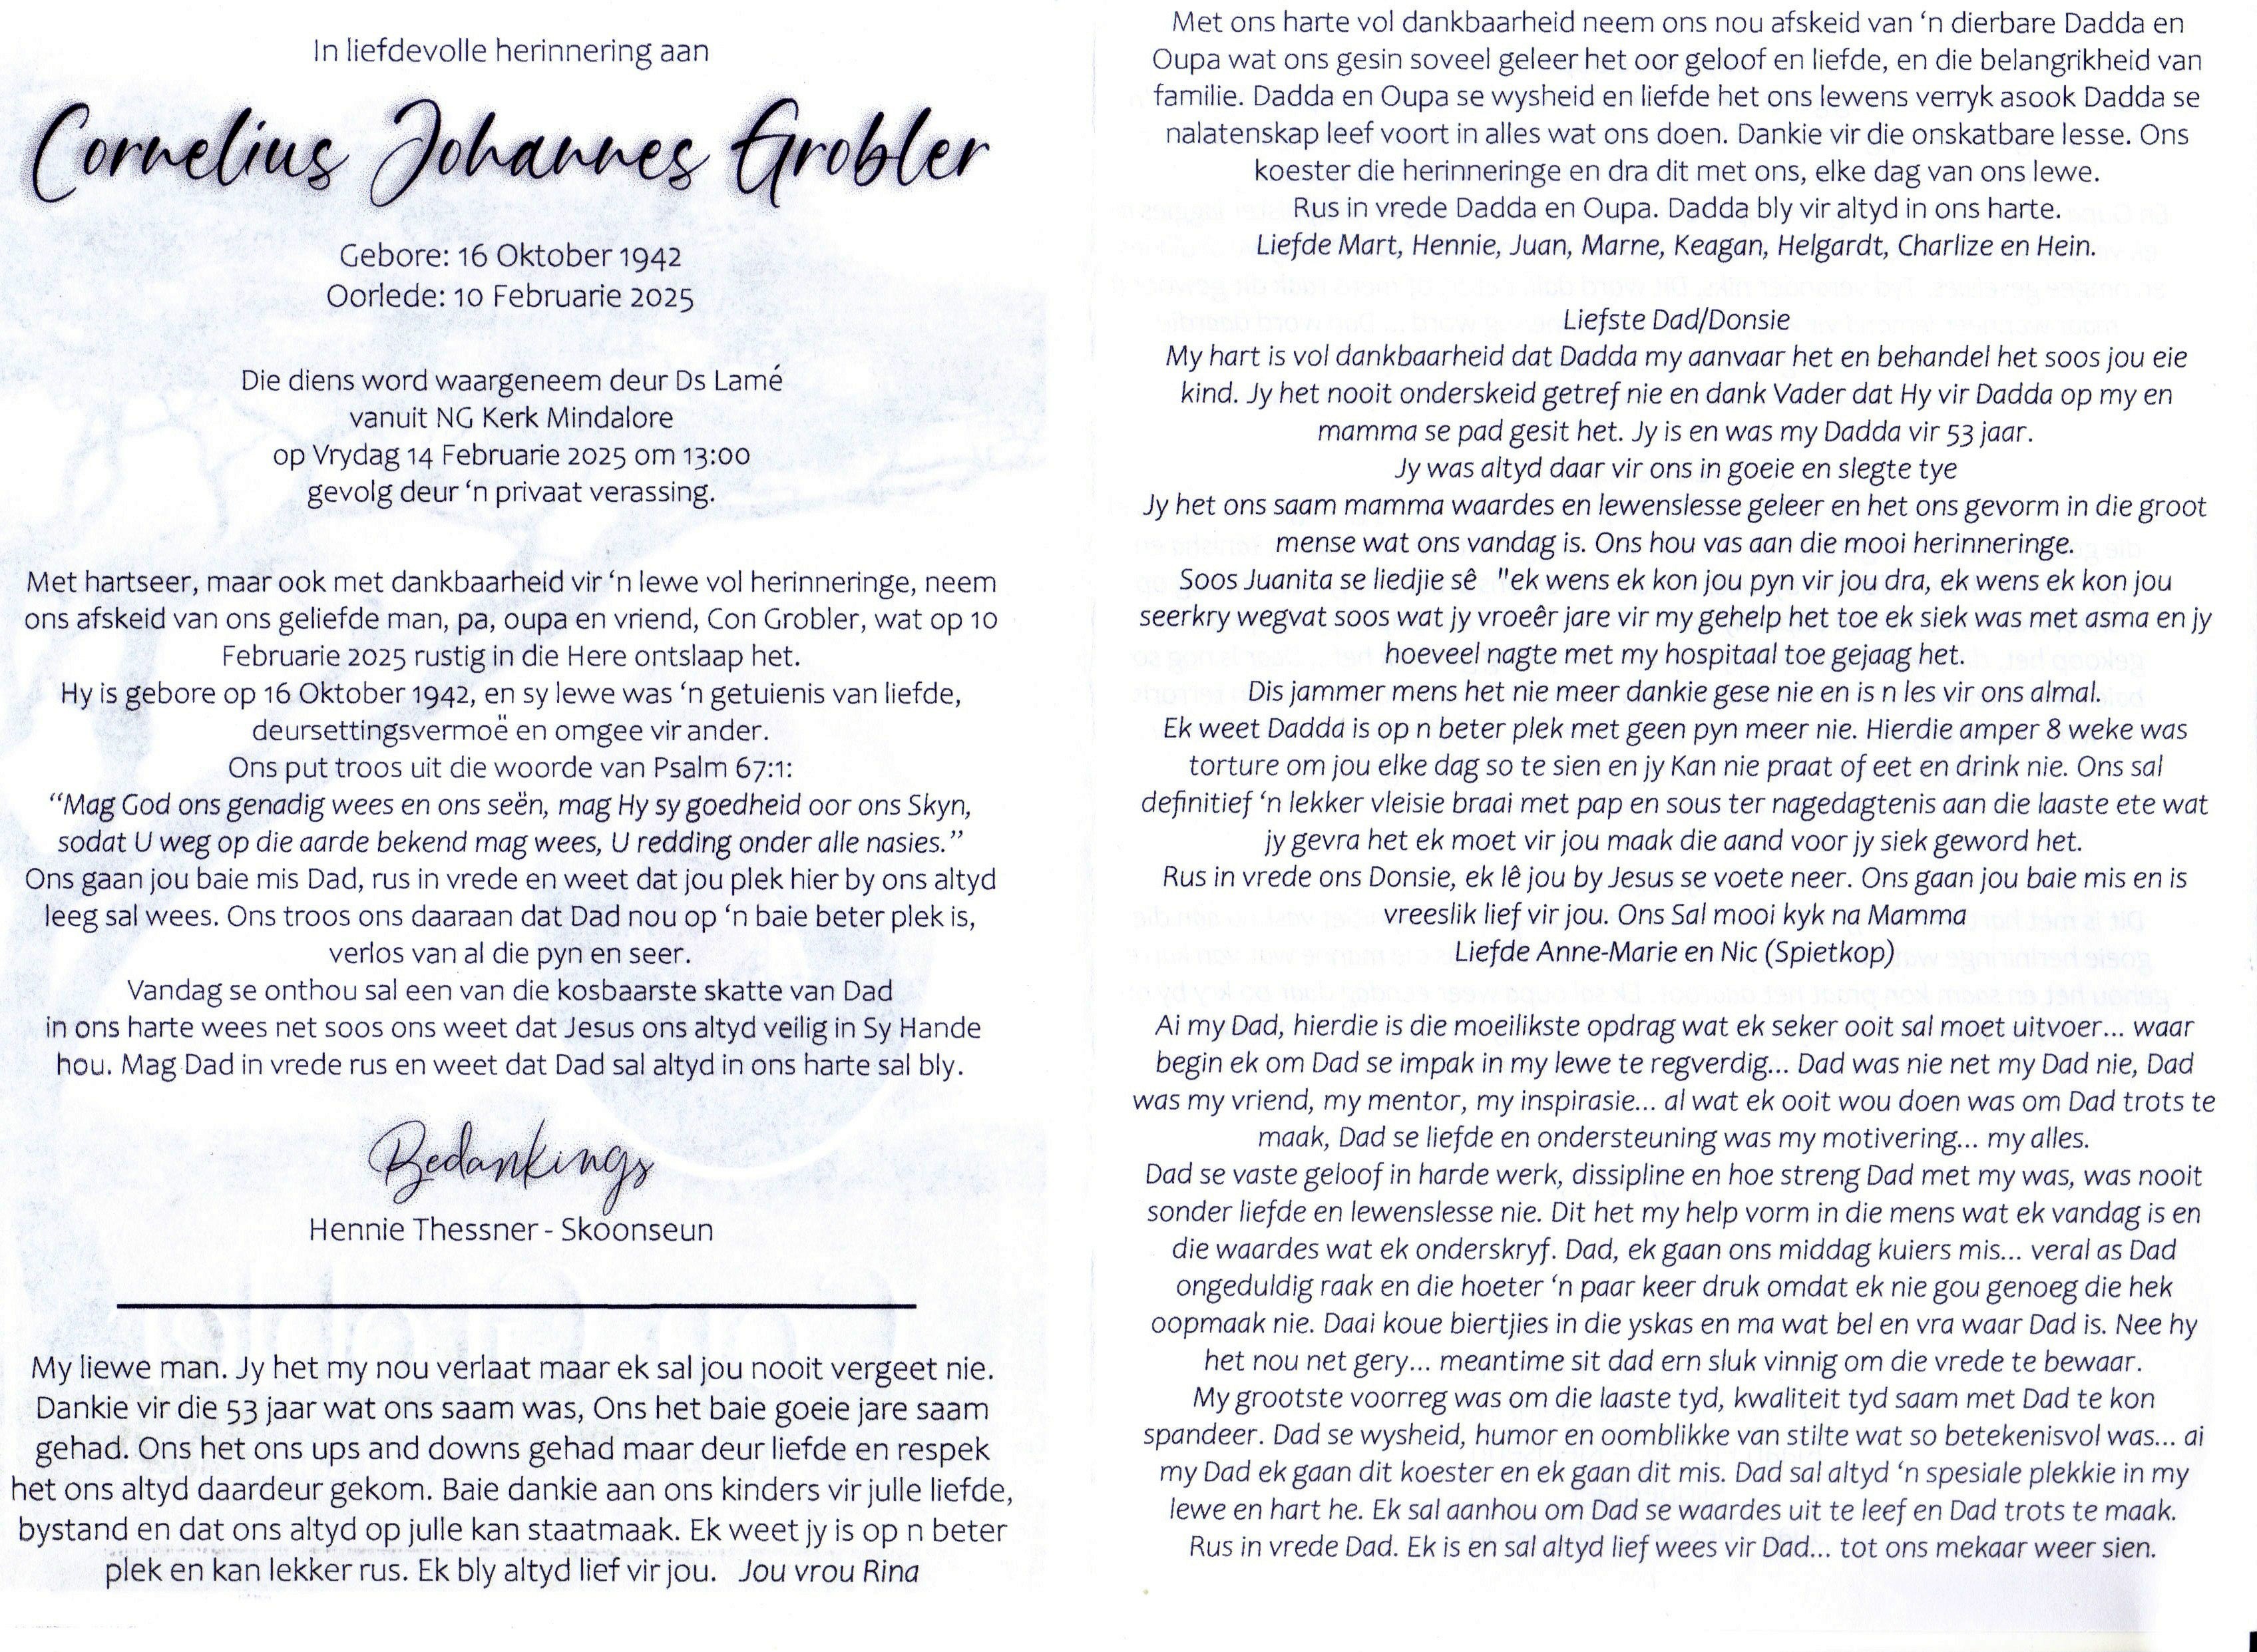 In liefdevolle herinnering aan
Cornelius Johannes Grobler
Gebore: 16 Oktober 1942
Oorlede: 10 Februarie 2025
Die diens word waargeneem deur Ds Lamé
vanuit NG Kerk Mindalore
op Vrydag 14 Februarie 2025 om 13:00
gevolg deur ‘n privaat verassing.
Met hartseer, maar ook met dankbaarheid vir ‘n lewe vol herinneringe, neem
ons afskeid van ons geliefde man, pa, oupa en vriend, Con Grobler, wat op 10
Februarie 2025 rustig in die Here ontslaap het.
Hy is gebore op 16 Oktober 1942, en sy lewe was ‘n getuienis van liefde,
deursettingsvermoë en omgee vir ander.
Ons put troos uit die woorde van Psalm 67:1:
“Mag God ons genadig wees en ons seën, mag Hy sy goedheid oor ons Skyn,
sodat U weg op die aarde bekend mag wees, U redding onder alle nasies.”
Ons gaan jou baie mis Dad, rus in vrede en weet dat jou plek hier by ons altyd
leeg sal wees. Ons troos ons daaraan dat Dad nou op ‘n baie beter plek is,
verlos van al die pyn en seer.
Vandag se onthou sal een van die kosbaarste skatte van Dad
in ons harte wees net soos ons weet dat Jesus ons altyd veilig in Sy Hande
hou. Mag Dad in vrede rus en weet dat Dad sal altyd in ons harte sal bly.
Bedankings
Hennie Thessner - Skoonseun
My liewe man. Jy het my nou verlaat maar ek sal jou nooit vergeet nie.
Dankie vir die 53 jaar wat ons saam was, Ons het baie goeie jare saam
gehad. Ons het ons ups and downs gehad maar deur liefde en respek
het ons altyd daardeur gekom. Baie dankie aan ons kinders vir julle liefde,
bystand en dat ons altyd op julle kan staatmaak. Ek weet jy is op n beter
plek en kan lekker rus. Ek bly altyd lief vir jou. Jou vrou Rina
Met ons harte vol dankbaarheid neem ons nou afskeid van ‘n dierbare Dadda en
Oupa wat ons gesin soveel geleer het oor geloof en liefde, en die belangrikheid van
familie. Dadda en Oupa se wysheid en liefde het ons lewens verryk asook Dadda se
nalatenskap leef voort in alles wat ons doen. Dankie vir die onskatbare lesse. Ons
koester die herinneringe en dra dit met ons, elke dag van ons lewe.
Rus in vrede Dadda en Oupa. Dadda bly vir altyd in ons harte.
Liefde Mart, Hennie, Juan, Marne, Keagan, Helgardt, Charlize en Hein.
Liefste Dad/Donsie
My hart is vol dankbaarheid dat Dadda my aanvaar het en behandel het soos jou eie
kind. Jy het nooit onderskeid getref nie en dank Vader dat Hy vir Dadda op my en
mamma se pad gesit het. Jy is en was my Dadda vir 53 jaar.
Jy was altyd daar vir ons in goeie en slegte tye
Jy het ons saam mamma waardes en lewenslesse geleer en het ons gevorm in die groot
mense wat ons vandag is. Ons hou vas aan die mooi herinneringe.
Soos Juanita se liedjie sê "ek wens ek kon jou pyn vir jou dra, ek wens ek kon jou
seerkry wegvat soos wat jy vroeêr jare vir my gehelp het toe ek siek was met asma en jy
hoeveel nagte met my hospitaal toe gejaag het.
Dis jammer mens het nie meer dankie gese nie en is n les vir ons almal.
Ek weet Dadda is op n beter plek met geen pyn meer nie. Hierdie amper 8 weke was
torture om jou elke dag so te sien en jy Kan nie praat of eet en drink nie. Ons sal
definitief ‘n lekker vleisie braai met pap en sous ter nagedagtenis aan die laaste ete wat
jy gevra het ek moet vir jou maak die aand voor jy siek geword het.
Rus in vrede ons Donsie, ek lê jou by Jesus se voete neer. Ons gaan jou baie mis en is
vreeslik lief vir jou. Ons Sal mooi kyk na Mamma
Liefde Anne-Marie en Nic (Spietkop)
Ai my Dad, hierdie is die moeilikste opdrag wat ek seker ooit sal moet uitvoer... waar
begin ek om Dad se impak in my lewe te regverdig... Dad was nie net my Dad nie, Dad
was my vriend, my mentor, my inspirasie... al wat ek ooit wou doen was om Dad trots te
maak, Dad se liefde en ondersteuning was my motivering... my alles.
Dad se vaste geloof in harde werk, dissipline en hoe streng Dad met my was, was nooit
sonder liefde en lewenslesse nie. Dit het my help vorm in die mens wat ek vandag is en
die waardes wat ek onderskryf. Dad, ek gaan ons middag kuiers mis... veral as Dad
ongeduldig raak en die hoeter ‘n paar keer druk omdat ek nie gou genoeg die hek
oopmaak nie. Daai koue biertjies in die yskas en ma wat bel en vra waar Dad is. Nee hy
het nou net gery... meantime sit dad ern sluk vinnig om die vrede te bewaar.
My grootste voorreg was om die laaste tyd, kwaliteit tyd saam met Dad te kon
spandeer. Dad se wysheid, humor en oomblikke van stilte wat so betekenisvol was... ai
my Dad ek gaan dit koester en ek gaan dit mis. Dad sal altyd ‘n spesiale plekkie in my
lewe en hart he. Ek sal aanhou om Dad se waardes uit te leef en Dad trots te maak.
Rus in vrede Dad. Ek is en sal altyd lief wees vir Dad... tot ons mekaar weer sien.